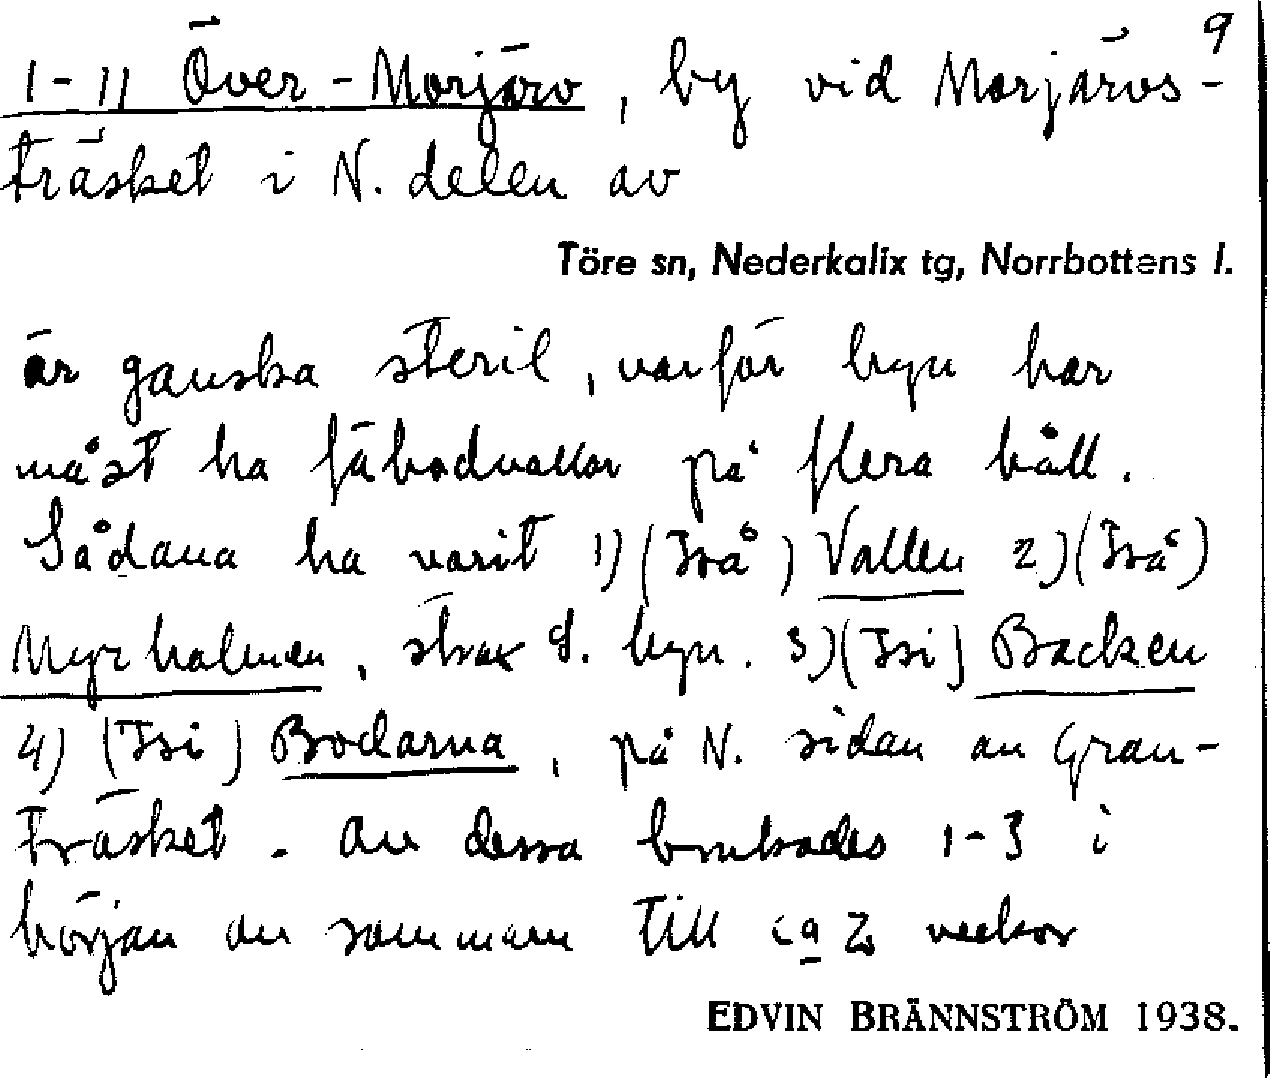 9
1-11 Över-Morjärv, by vid Morjärvs-
träsket i N. delen av
Töre sn, Nederkalix tg, Norrbottens l.
är ganska steril, varför byn har
måst ha fäbodvallar på flera håll.
Sådana ha varit 1) (Två) Vallen 2) (Två)
Myrholmen, strax S. byn. 3) (Tri) Backen
4) (Tri) Bodarna, på N. sidan av Gran-
träsket. Av dessa brukades 1-3 i
början av sommarn till ca 2 veckor
EDVIN BRÄNNSTRÖM 1938.